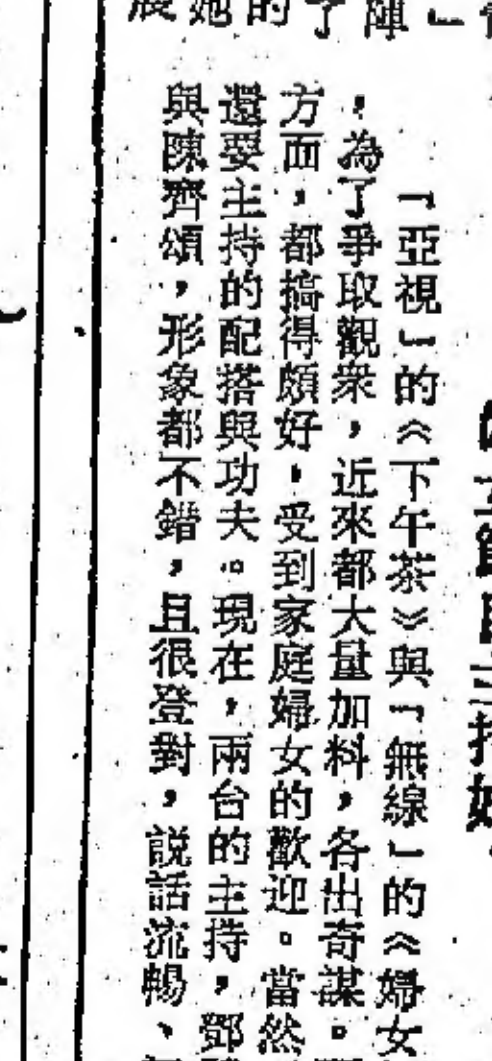 」
陣
了
的
她
「亞視」的《下午茶》與「無線」的《婦女
，為了爭取觀衆，近來都大量加料，各出奇謀。
方面，都搞得頗好，受到家庭婦女的歡迎。當然
還要主持的配搭與功夫。現在，兩台的主持，鄧
與陳齊頌，形象都不錯，且很登對，説話流暢、